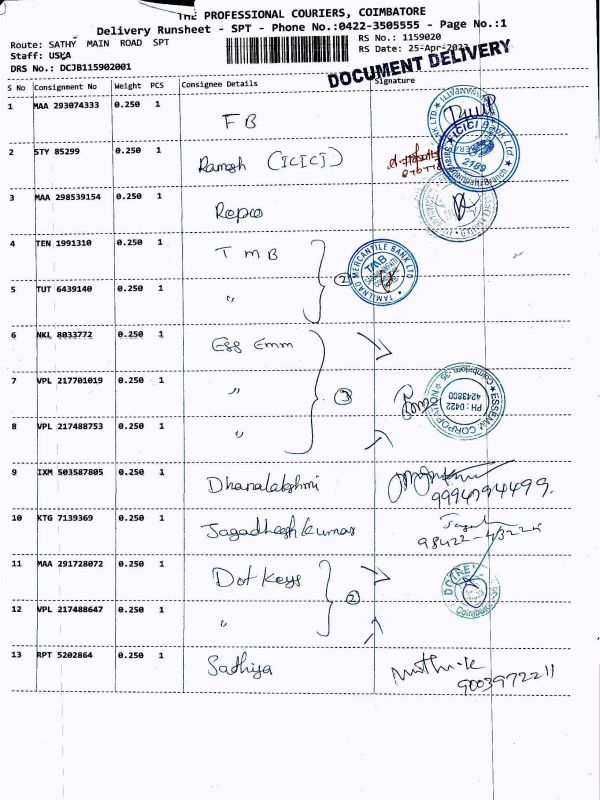 THE PROFESSIONAL COURIERS, COIMBATORE
Delivery Runsheet - SPT - Phone No.:0422-3505555 - Page No.:1
Route: SATHY MAIN ROAD SPT
RS No.: 1159020
Staff: USKA
RS Date: 25-Apr-2023
DRS No.: DCJB115902001
DOCUMENT DELIVERY
S No Consignment No Weight PCS Consignee Details Signature
1 MAA 293074333 0.250 1 FB
2 STY 85299 0.250 1 Ramesh (ICICI)
ICICI Bank Ltd
2189
3 MAA 298539154 0.250 1 Repco
4 TEN 1991310 0.250 1 TMB
2
TAMILNAD MERCANTILE BANK LTD
TMB
5 TUT 6439140 0.250 1 "
6 NKL 8033772 0.250 1 Ess Emm
7 VPL 217701019 0.250 1 "
3
ESSEMM CORPORATION
Coimbatore - 35
PH : 0422
4243800
8 VPL 217488753 0.250 1 "
9 IXM 503587805 0.250 1 Dhanalakshmi
9994794499.
10 KTG 7139369 0.250 1 Jagadheeshkumar
11 MAA 291728072 0.250 1 Dot Keys
2
12 VPL 217488647 0.250 1 "
13 RPT 5202864 0.250 1 Sadhiya
Muthu.k
9003972211